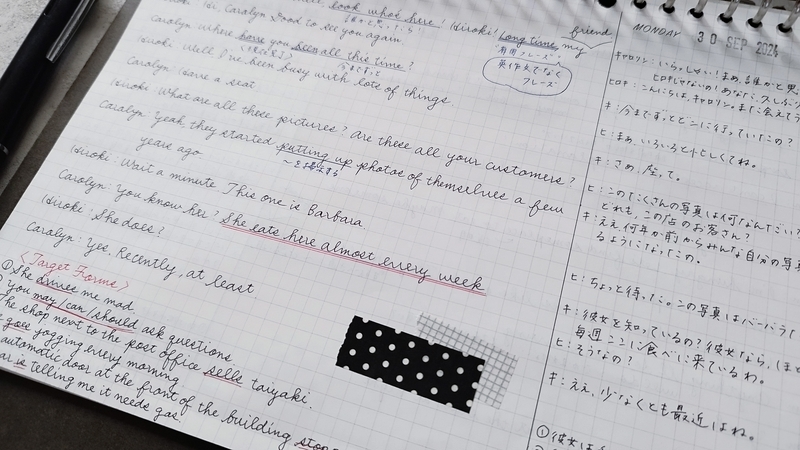 Hi, Carolyn. Good to see you again
look who's here! Hiroki! Long time, my friend
Carolyn: Where have you been all this time?
今までずっと
Hiroki: Well I've been busy with lots of things.
Carolyn: Have a seat
Hiroki: What are all these pictures? Are these all your customers?
Carolyn: Yeah, they started putting up photos of themselves a few
years ago
Hiroki: Wait a minute. This one is Barbara.
Carolyn: You know her? She eats here almost every week
Hiroki: She does?
Carolyn: Yes. Recently, at least.
<Target Forms>
① She drives me mad.
You may/can/should ask questions
The shop next to the post office sells taiyaki.
goes jogging every morning
automatic door at the front of the building
is telling me it needs gas.
有用フレーズ
英作文でなく
フレーズ
MONDAY 30 SEP 2024
キャロリン: いらっしゃい! まあ、誰かと思
ヒロキ: こんにちは、キャロリン。また会えて
キ: 今までずっとどこに行っていたの?
ヒ: まあ、いろいろと忙しくてね。
キ: さあ、座って。
ヒ: このたくさんの写真は何なんだい?
どれも、この店のお客さん?
キ: ええ、何年か前からみんな自分の写真
るようになったの。
ヒ: ちょっと待った。この写真はバーバラ
キ: 彼女を知っているの? 彼女なら、ほと
毎週ここに食べに来ているわ。
ヒ: そうなの?
キ: ええ、少なくとも最近はね。
① 彼女は